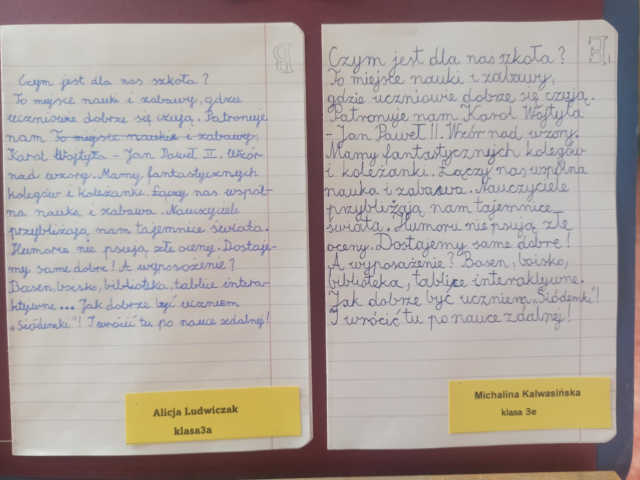 Czym jest dla nas szkoła?
To miejsce nauki i zabawy, gdzie
uczniowie dobrze się czują. Patronuje
nam To miejsce nauki i zabawy,
Karol Wojtyła - Jan Paweł II. Wzór
nad wzory. Mamy fantastycznych
kolegów i koleżanki. Łączy nas wspól-
na nauka i zabawa. Nauczyciele
przybliżają nam tajemnice świata.
Humoru nie psują złe oceny. Dostaje-
my same dobre! A wyposażenie?
Basen, boisko, biblioteka, tablice intera-
ktywne... Jak dobrze być uczniem
„Siódemki"! I wrócić tu po nauce zdalnej!
Alicja Ludwiczak
klasa3a
Czym jest dla nas szkoła?
To miejsce nauki i zabawy,
gdzie uczniowie dobrze się czują.
Patronuje nam Karol Wojtyła
- Jan Paweł II. Wzór nad wzory.
Mamy fantastycznych kolegów
i koleżanki. Łączy nas wspólna
nauka i zabawa. Nauczyciele
przybliżają nam tajemnice
świata. Humoru nie psują złe
oceny. Dostajemy same dobre!
A wyposażenie? Basen, boisko,
biblioteka, tablice interaktywne.
Jak dobrze być uczniem „Siódemki"!
I wrócić tu po nauce zdalnej!
Michalina Kalwasińska
klasa 3e